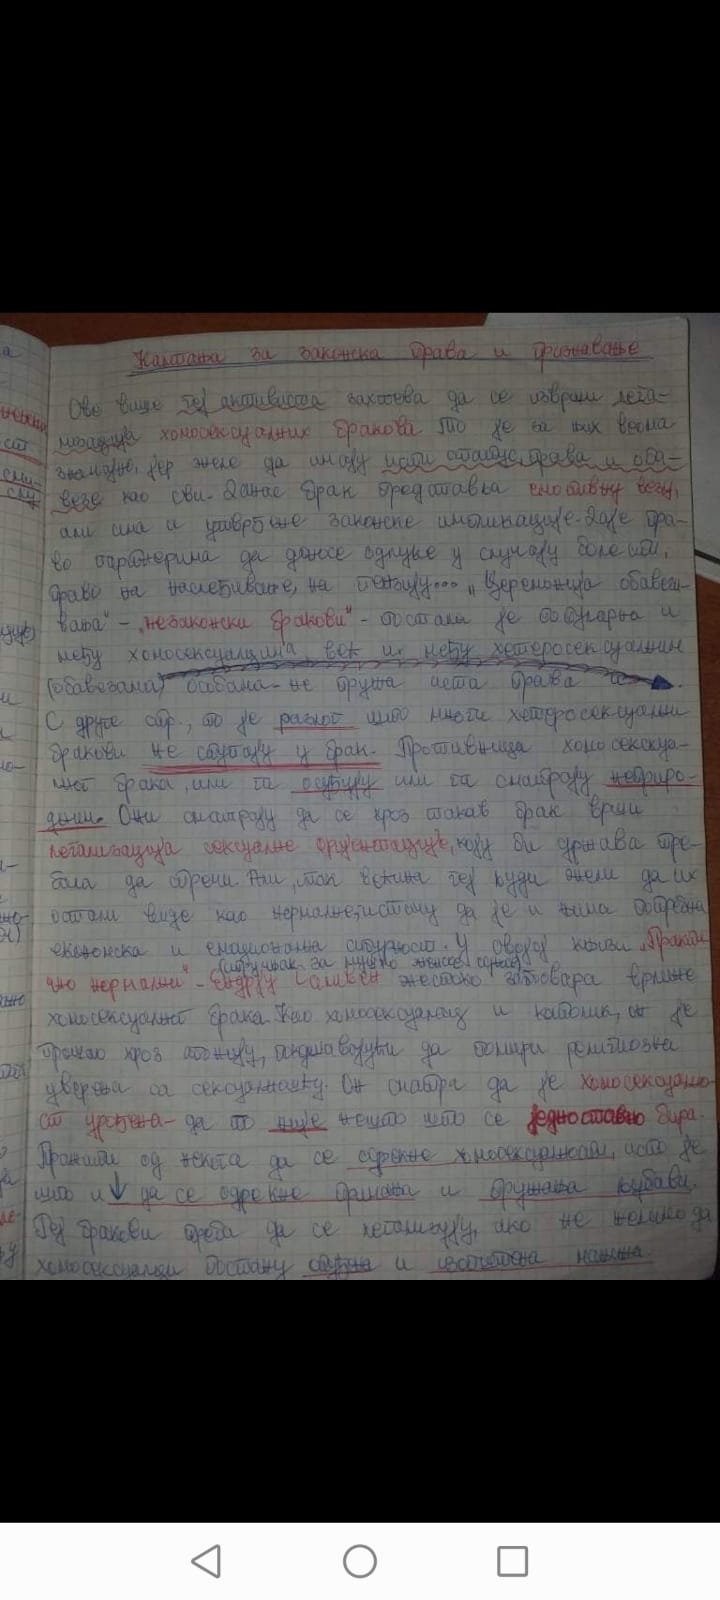 Кампања за законска права и признавање
Све више геј активиста захтева да се изврши лега-
лизација хомосексуалних бракова. То је за њих веома
значајно, јер желе да имају исти статус, права и оба-
везе као сви. Данас брак представља емотивну везу,
али има и утврђене законске импликације. Даје пра-
во партнерима да доносе одлуке у случају болести,
право на наслеђивање, на пензију... „Церемонија обавези-
вања" - „незаконски бракови" - постала је популарна и
међу хомосексуалцима, већ и међу хетеросексуалним
(обавезама) особама - не пружа иста права
С друге стр., то је разлог што многи хетеросексуални
бракови не ступају у брак. Противници хомосексуа-
лног брака, или га осуђују или га сматрају неприро-
дним. Они сматрају да се кроз такав брак врши
легализација сексуалне оријентације, коју би држава тре-
бала да спречи. Али, пак већина геј људи жели да их
остали виде као нормалне, истичу да је и њима потребна
економска и емоционална сигурност. У својој књизи „Практи
чно нормални" - Ендрју Саливен жестоко заговара врлине
хомосексуалног брака. Као хомосексуалац и католик, он је
прошао кроз агонију, покушавајући да помири религиозна
уверења са сексуалношћу. Он сматра да је хомосексуално-
ст урођена - да то није нешто што се једноставно бира.
Тражити од некога да се одрекне хомосексуалности, исто је
што и да се одрекне примања и пружања љубави.
Геј бракови треба да се легализују, ако не желимо да
хомосексуалци постану отуђена и изопштена мањина.